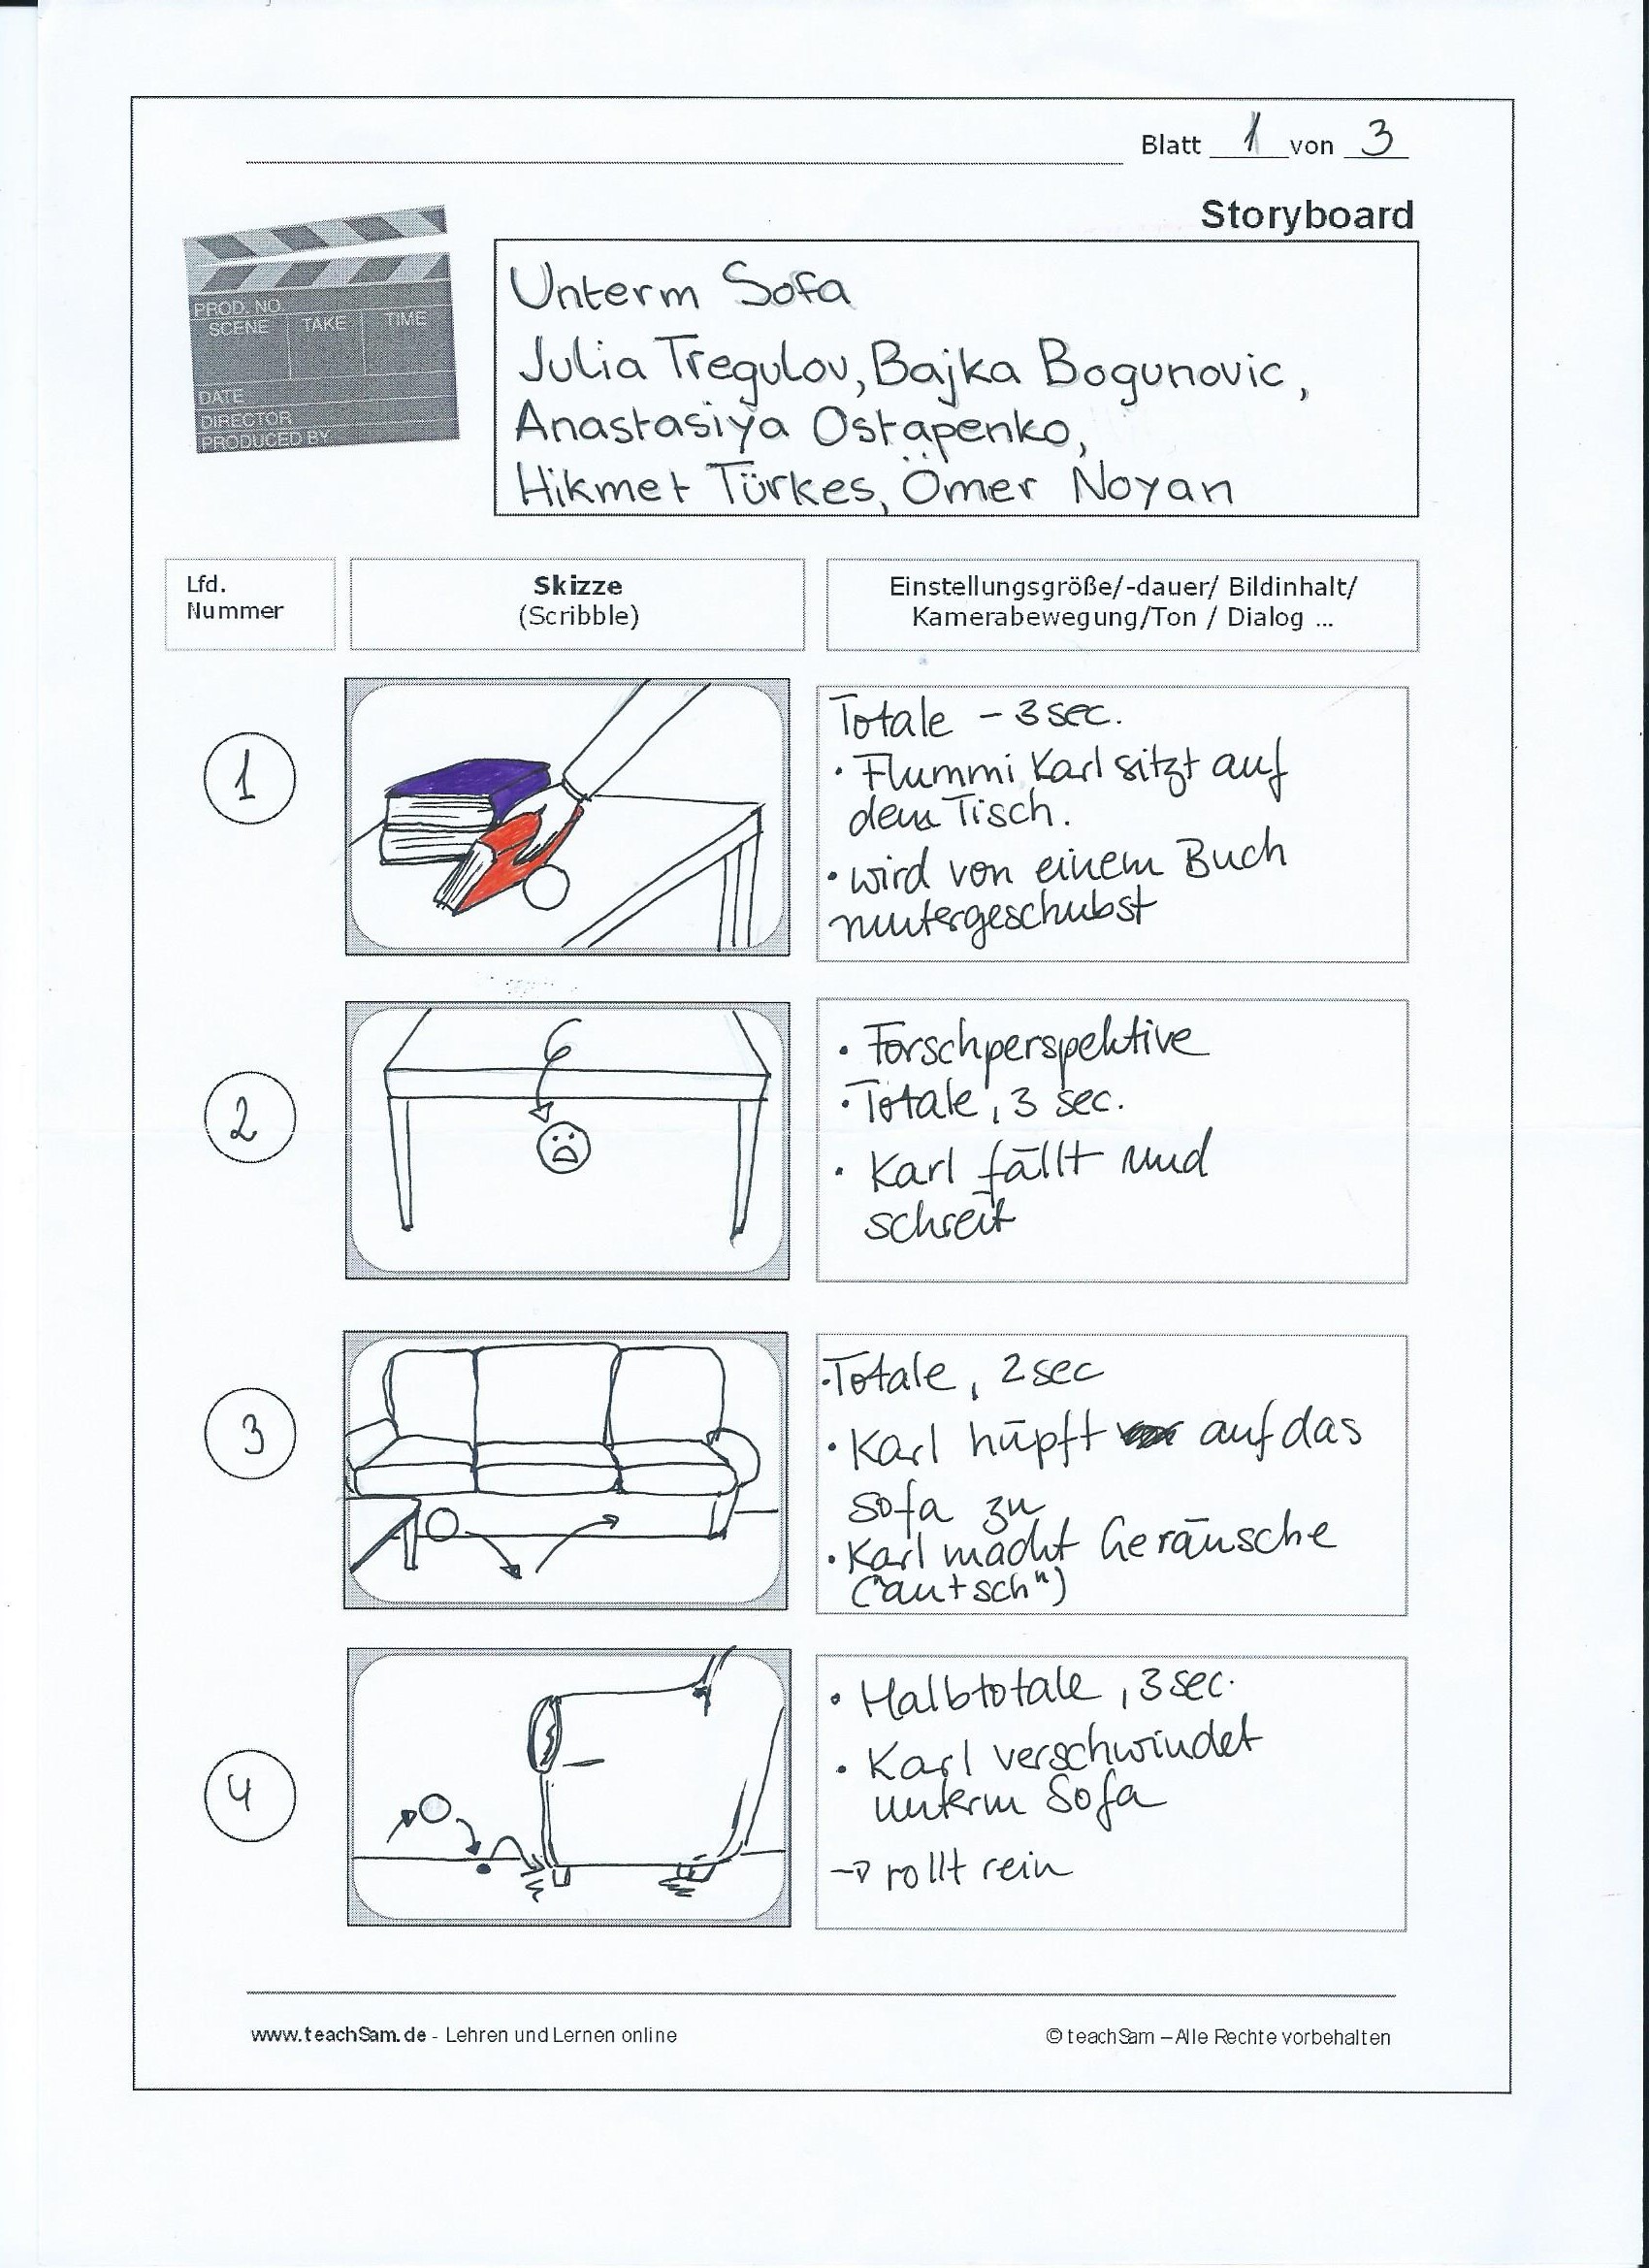 Blatt 1 von 3
Storyboard
PROD. NO.
SCENE TAKE TIME
DATE
DIRECTOR
PRODUCED BY
Unterm Sofa
Julia Tregulov, Bajka Bogunovic,
Anastasiya Ostapenko,
Hikmet Türkes, Ömer Noyan
Lfd.
Nummer
Skizze
(Scribble)
Einstellungsgröße/-dauer/ Bildinhalt/
Kamerabewegung/Ton / Dialog ...
1
Totale - 3 sec.
• Flummi Karl sitzt auf
dem Tisch.
• wird von einem Buch
runtergeschubst
2
• Forschperspektive
• Totale, 3 sec.
• Karl fällt und
schreit
3
• Totale, 2 sec
• Karl hüpft auf das
Sofa zu
• Karl macht Geräusche
("autsch")
4
• Halbtotale, 3 sec.
• Karl verschwindet
unterm Sofa
→ rollt rein
www.teachSam.de - Lehren und Lernen online
© teachSam – Alle Rechte vorbehalten